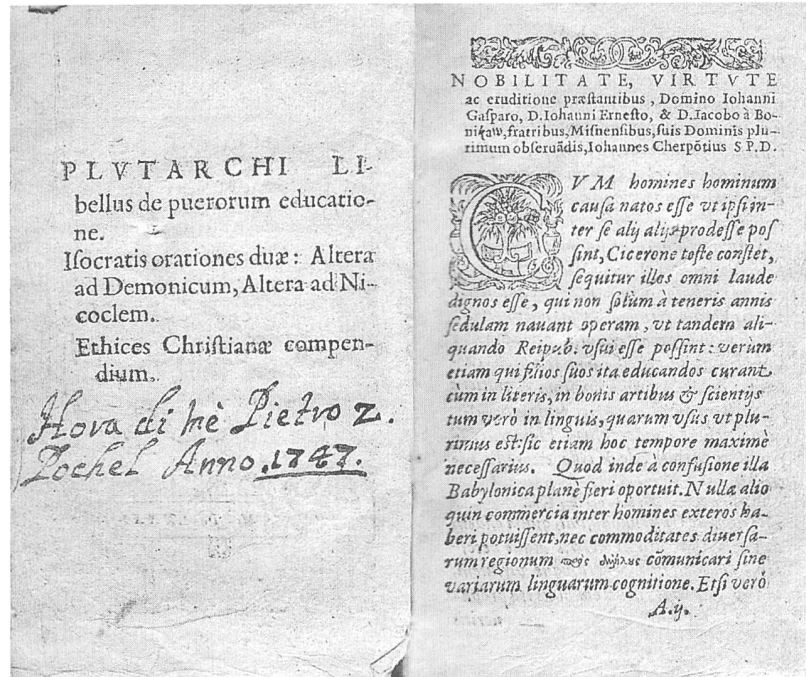 PLVTARCHI LI-
bellus de puerorum educatio-
ne.
Isocratis orationes duæ: Altera
ad Demonicum, Altera ad Ni-
coclem.
Ethices Christianæ compen-
dium.
Hora di me Pietro Z.
Pochel Anno 1747.
NOBILITATE, VIRTVTE
ac eruditione præstantibus, Domino Iohanni
Gasparo, D. Iohanni Ernesto, & D. Iacobo à Bo-
fratribus, Misnensibus, suis Dominis plu-
rimum obseruãdis, Iohannes Cherpõtius S P. D.
CVM homines hominum
causa natos esse vt ipsi in-
ter se alij alijs prodesse pos
sint, Cicerone teste constet,
sequitur illos omni laude
dignos esse, qui non solum à teneris annis
sedulam nauant operam, vt tandem ali-
quando Reipub. vsui esse possint: verùm
etiam qui filios suos ita educandos curant
cùm in literis, in bonis artibus & scientijs
tum verò in linguis, quarum vsus vt plu-
rimus est: sic etiam hoc tempore maximè
necessarius. Quod inde à confusione illa
Babylonica planè fieri oportuit. Nulla alio
quin commercia inter homines exteros ha-
beri potuissent, nec commoditates diuersa-
rum regionum cõmunicari sine
variarum linguarum cognitione. Etsi verò
A.ij.